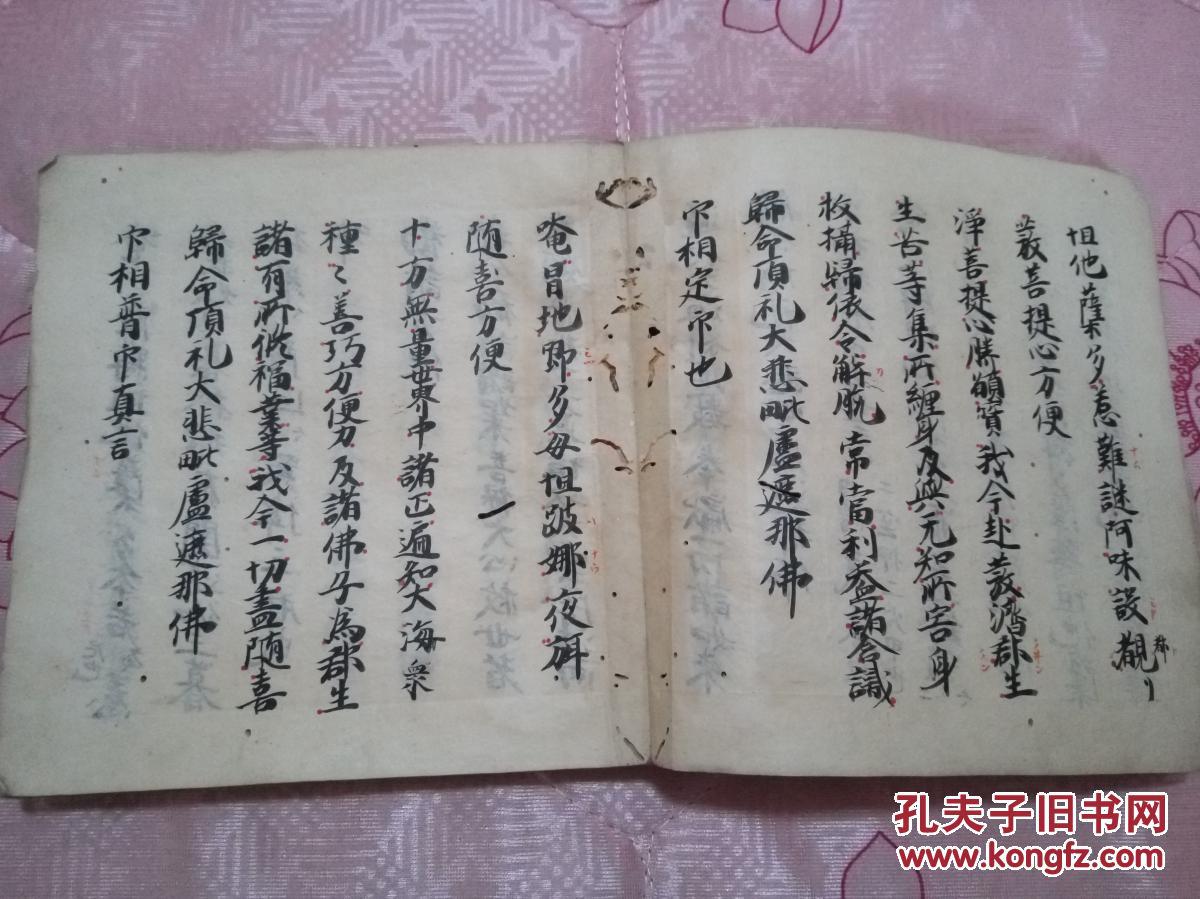 怛他薩多惹難謎阿味設覩
發菩提心方便
淨菩提心勝願寶我今赴發濟群生
生苦等集所纏身及與无知所害身
牧攝歸依令解脱常當利益諸含識
歸命頂礼大悲毗盧遮那佛
印相定印也
唵冒地即多母怛跛娜夜弭
随喜方便
十方無量世界中諸正遍知大海衆
種〻善巧方便力及諸佛子為群生
諸有所修福業等我今一切盡随喜
歸命頂礼大悲毗盧遮那佛
印相普印真言
孔夫子旧书网
www.kongfz.com